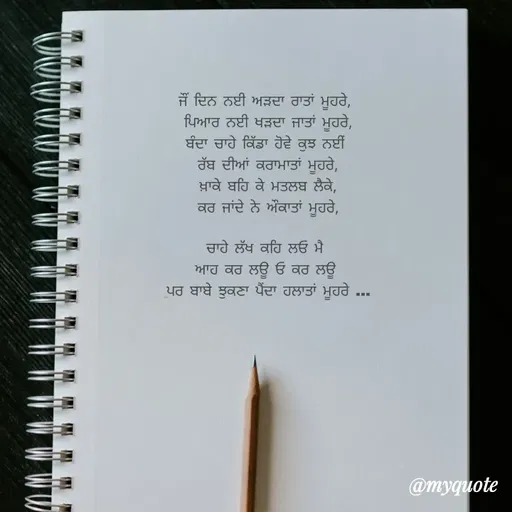 ਜੌਂ ਦਿਨ ਨਈ ਅੜਦਾ ਰਾਤਾਂ ਮੂਹਰੇ,
ਪਿਆਰ ਨਈ ਖੜਦਾ ਜਾਤਾਂ ਮੂਹਰੇ,
ਬੰਦਾ ਚਾਹੇ ਕਿੱਡਾ ਹੋਵੇ ਕੁਝ ਨਈਂ
ਰੱਬ ਦੀਆਂ ਕਰਾਮਾਤਾਂ ਮੂਹਰੇ,
ਖ਼ਾਕੇ ਬਹਿ ਕੇ ਮਤਲਬ ਲੈਕੇ,
ਕਰ ਜਾਂਦੇ ਨੇ ਔਕਾਤਾਂ ਮੂਹਰੇ,
ਚਾਹੇ ਲੱਖ ਕਹਿ ਲਓ ਮੈ
ਆਹ ਕਰ ਲਊ ਓ ਕਰ ਲਊ
ਪਰ ਬਾਬੇ ਝੁਕਣਾ ਪੈਂਦਾ ਹਲਾਤਾਂ ਮੂਹਰੇ ...
@myquote